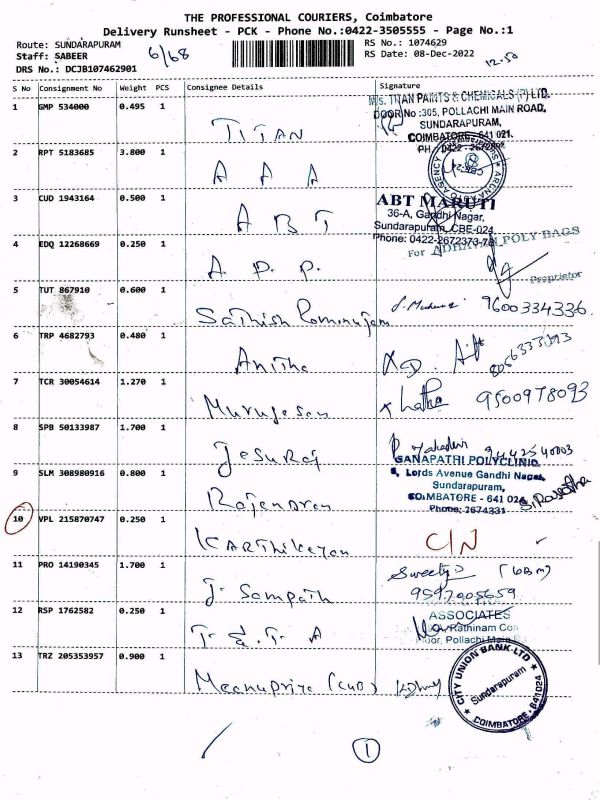 THE PROFESSIONAL COURIERS, Coimbatore
Delivery Runsheet - PCK - Phone No.:0422-3505555 - Page No.:1
Route: SUNDARAPURAM
Staff: SABEER
6/68
RS No.: 1074629
RS Date: 08-Dec-2022
12.50
DRS No.: DCJB107462901
S No Consignment No Weight PCS Consignee Details Signature
1 GMP 534000 0.495 1 TITAN
M/s. TITAN PAINTS & CHEMICALS (P) LTD.
DOOR No :305, POLLACHI MAIN ROAD,
SUNDARAPURAM,
COIMBATORE - 641 021.
2 RPT 5183685 3.800 1 A A A
3 CUD 1943164 0.500 1 A B T
ABT MARUTI
36-A, Gandhi Nagar,
Sundarapuram, CBE-024
Phone: 0422-2672373-74
4 EDQ 12268669 0.250 1 A. P. P.
For ADHAVAN POLY BAGS
Proprietor
5 TUT 867910 0.600 1 Sathish Raminujam
9600334336
6 TRP 4682793 0.480 1 Anitha
7 TCR 30054614 1.270 1 Murugesan
Latha 9500978093
8 SPB 50133987 1.700 1 Jesuraj
P. Mahadevi 9442540003
GANAPATHI POLYCLINIC
Lords Avenue Gandhi Nagar
Sundarapuram,
COIMBATORE - 641 024
Phone: 2674331
9 SLM 308980916 0.800 1 Rajendran
10 VPL 215870747 0.250 1 KARTHIKEYAN
C/N
11 PRO 14190345 1.700 1 J. Sampath
Sweety
9597005659
12 RSP 1762582 0.250 1 T. & T. A
ASSOCIATES
13 TRZ 205353957 0.900 1 Meenupriya (CUB)
CITY UNION BANK LTD
Sundarapuram
COIMBATORE - 641024
1